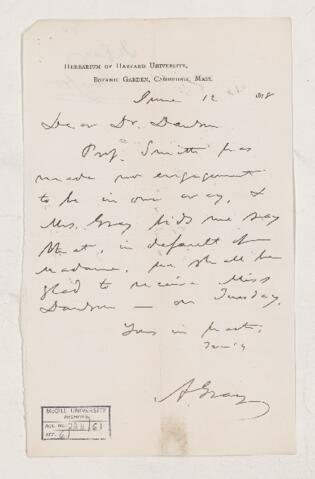 Herbarium of Harvard University,
Botanic Garden, Cambridge, Mass.
June 12 1878
Dear Dr. Dawson
Prof. Smith has
made no engagement
to be in our way, &
Mrs. Gray bids me say
that, in default of
Madame, we shall be
glad to receive Miss
Dawson — on Tuesday.
Yours in haste,
A. Gray
McGILL UNIVERSITY
ARCHIVES
ACC. NO.
REF.